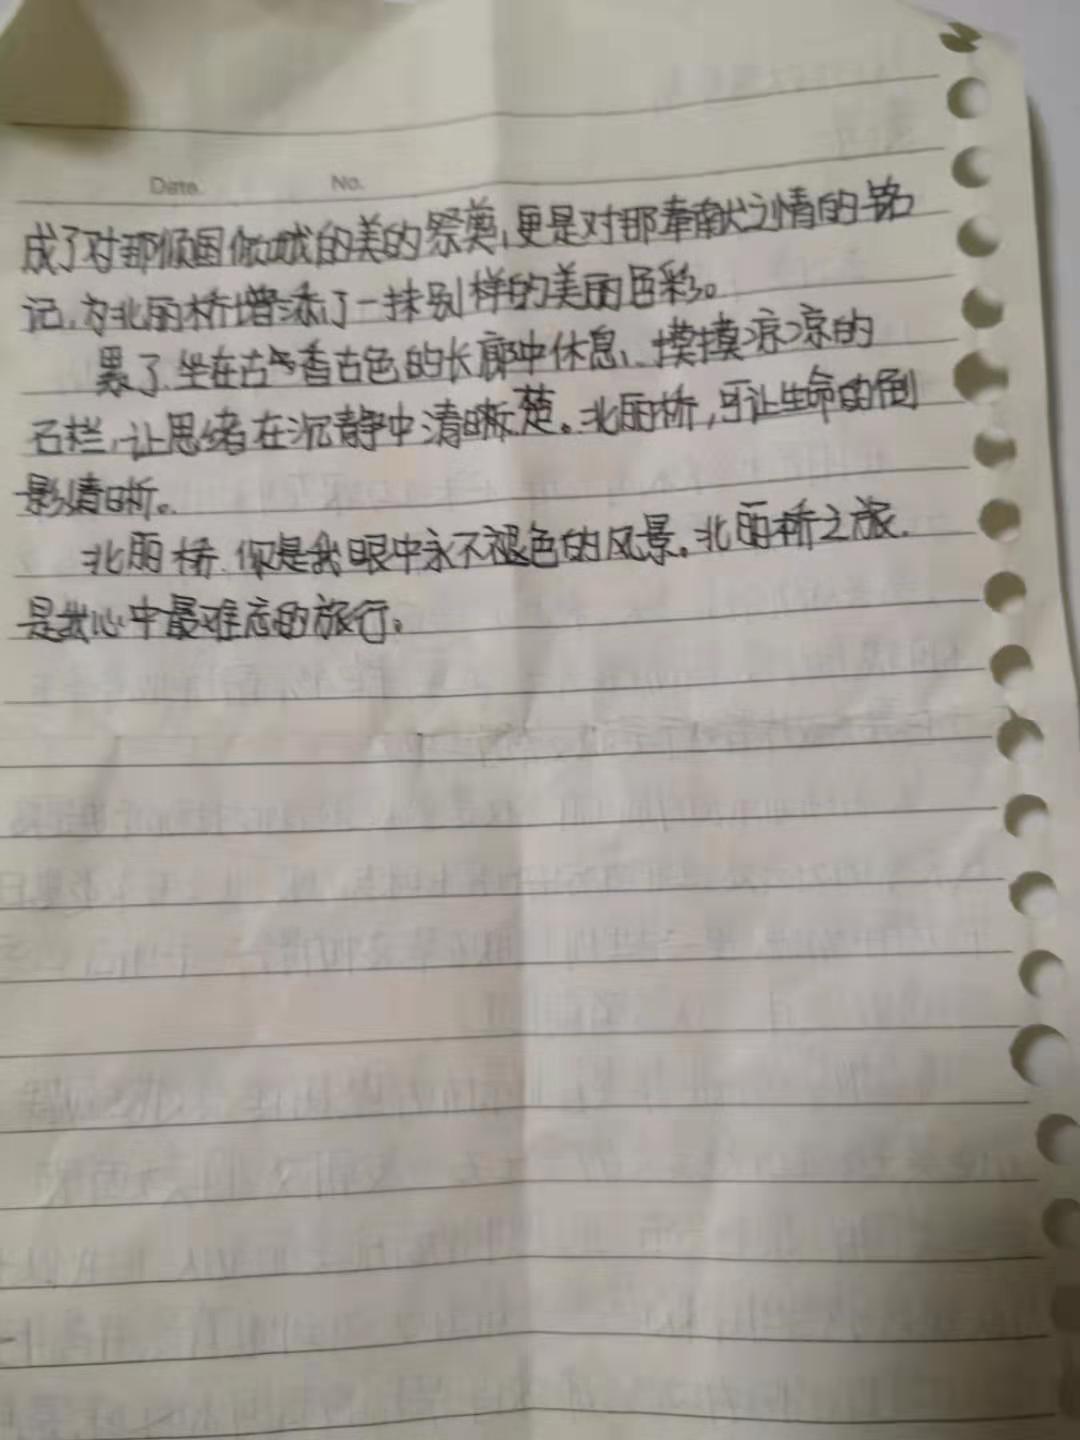 Date. No.
成了对那倾国倾城的美的祭奠,更是对那奉献之情的铭
记,为北丽桥增添了一抹别样的美丽色彩。
累了,坐在古香古色的长廊中休息、摸摸凉凉的
石栏,让思绪在沉静中清晰楚。北丽桥,可让生命的倒
影清晰。
北丽桥,你是我眼中永不褪色的风景。北丽桥之旅,
是我心中最难忘的旅行。